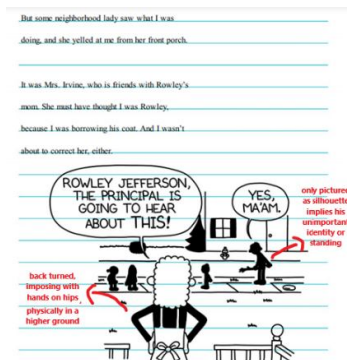 But some neighborhood lady saw what I was
doing, and she yelled at me from her front porch.
It was Mrs. Irvine, who is friends with Rowley's
mom. She must have thought I was Rowley,
because I was borrowing his coat. And I wasn't
about to correct her, either.
ROWLEY JEFFERSON,
THE PRINCIPAL IS
GOING TO HEAR
ABOUT THIS!
YES,
MA'AM.
only pictured
as silhouette
implies his
unimportant
identity or
standing
back turned,
imposing with
hands on hips,
physically in a
higher ground